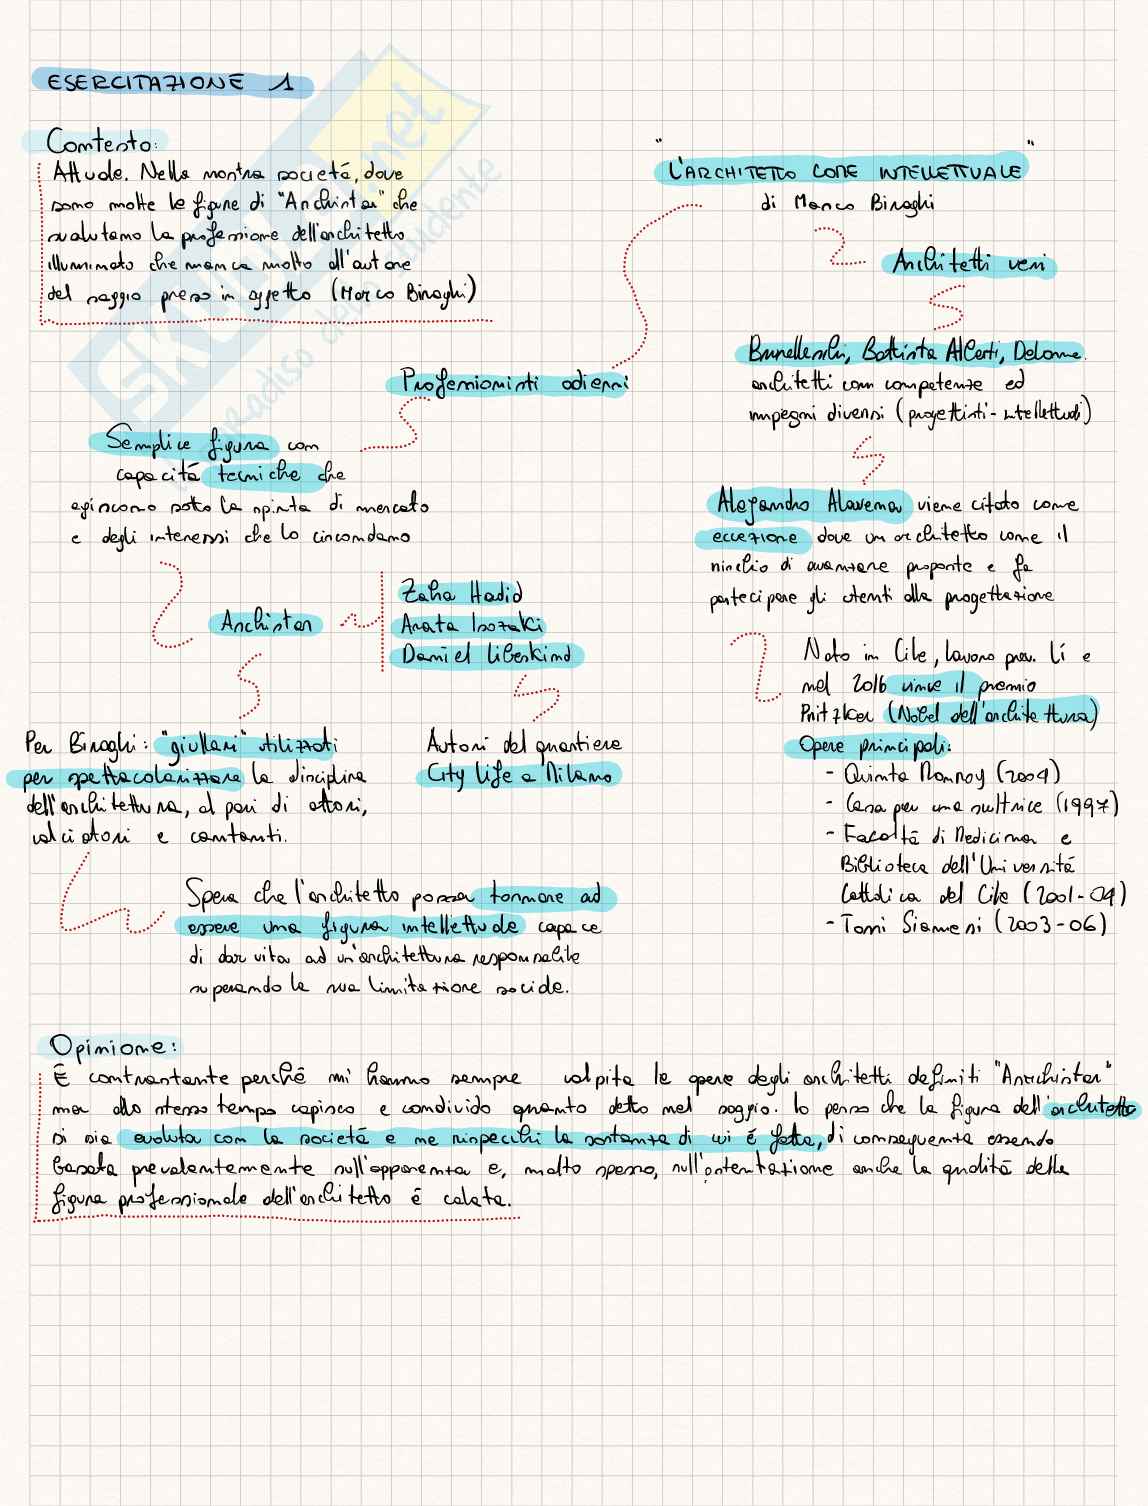 ESERCITAZIONE 1
Contesto:
Attuale. Nella nostra società, dove
sono molte le figure di "Archistar" che
svalutano la professione dell'architetto
illuminato che manca molto all'autore
del saggio preso in oggetto (Marco Biraghi)
"L'ARCHITETTO COME INTELLETTUALE"
di Marco Biraghi
Architetti veri
Brunelleschi, Battista Alberti, Delorme.
architetti con competenze ed
impegni diversi (progettisti-intellettuali)
Alejandro Aravena viene citato come
eccezione dove un architetto come il
rischio di avanzare proposte e fa
partecipare gli utenti alla progettazione
Nato in Cile, lavora prev. lí e
nel 2016 vince il premio
Pritzker (Nobel dell'architettura)
Opere principali:
- Quinta Monroy (2004)
- Casa per una scultrice (1997)
- Facoltà di Medicina e
Biblioteca dell'Università
Cattolica del Cile (2001-04)
- Torri Siamesi (2003-06)
Professionisti odierni
Semplice figura con
capacità tecniche che
agiscono sotto la spinta di mercato
e degli interessi che lo circondano
Archistar
Zaha Hadid
Arata Isozaki
Daniel Libeskind
Autori del quartiere
City life a Milano
Per Biraghi: "giullari" utilizzati
per spettacolarizzare la disciplina
dell'architettura, al pari di attori,
calciatori e cantanti.
Spera che l'architetto possa tornare ad
essere una figura intellettuale capace
di dar vita ad un'architettura responsabile
superando la sua limitazione sociale.
Opinione:
È contrastante perché mi hanno sempre colpita le opere degli architetti definiti "Archistar"
ma allo stesso tempo capisco e condivido quanto detto nel saggio. Io penso che la figura dell'architetto
si sia evoluta con la società e ne rispecchi la sostanza di cui è fatta, di conseguenza essendo
basata prevalentemente sull'apparenza e, molto spesso, sull'ostentazione anche la qualità della
figura professionale dell'architetto è calata.
SKUOLA.net
paradiso dello studente